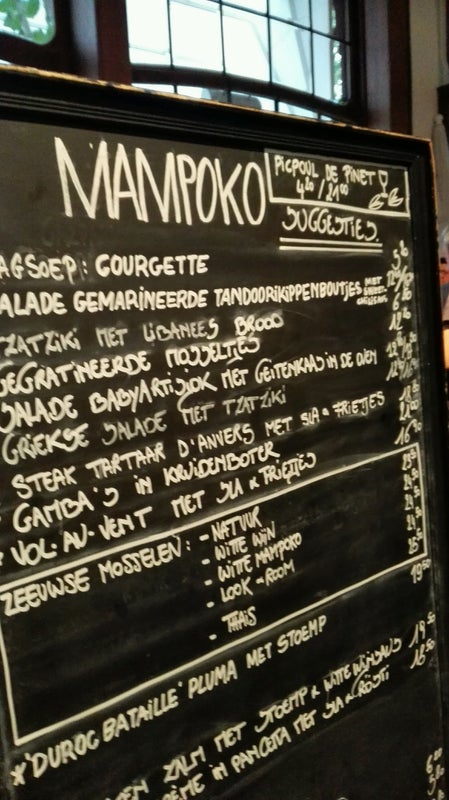 MAMPOKO
PICPOUL DE PINET
4,20 / 21,00
SUGGESTIES
AGSOEP: COURGETTE
ALADE GEMARINEERDE TANDOORIKIPPENBOUTJES MET
TZATZIKI MET LIBANEES BROOD
GEGRATINEERDE MOSSELTJES
SALADE BABYARTISJOK MET GEITENKAAS IN DE OVEN
GRIEKSE SALADE MET TZATZIKI
STEAK TARTAAR D'ANVERS MET SLA & FRIETJES
GAMBA'S IN KRUIDENBOTER
* VOL-AU-VENT MET SLA & FRIETJES 16,90
ZEEUWSE MOSSELEN: - NATUUR
- WITTE WIJN
- WITTE MAMPOKO
- LOOK-ROOM
- THAIS
* 'DUROC BATAILLE' PLUMA MET STOEMP 19,50
ZALM MET STOEMP & WITTE WIJNSAUS 19,50
CRÈME IN PANCETTA MET SLA & RÖSTI 18,50